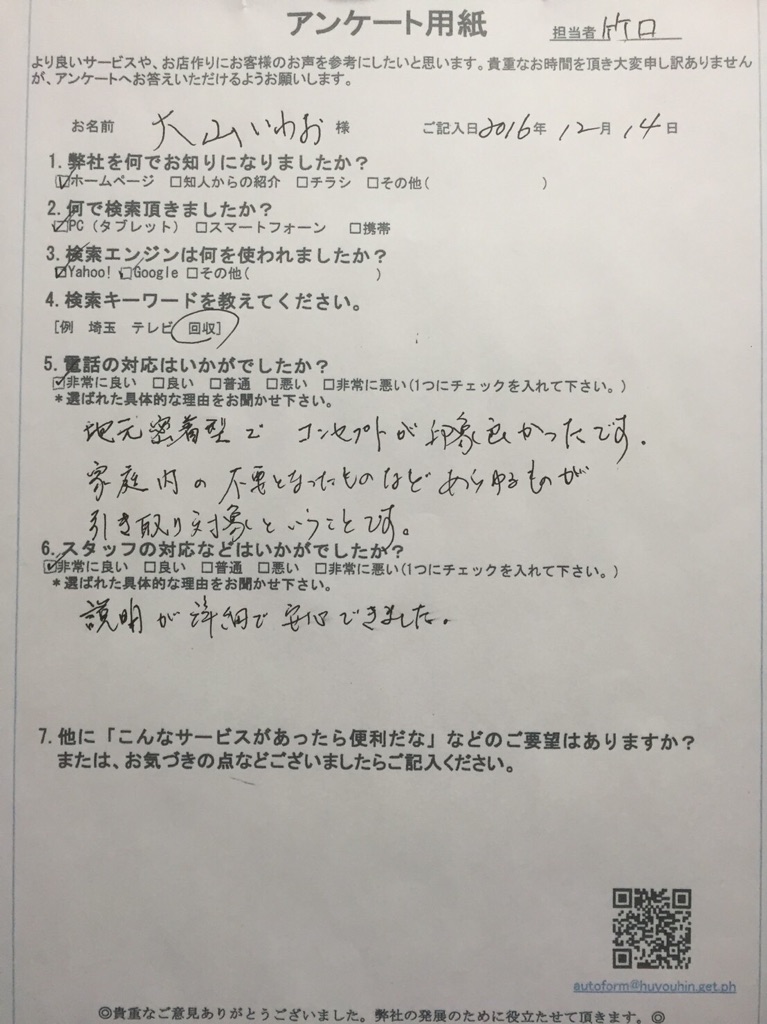 アンケート用紙
担当者 竹口
より良いサービスや、お店作りにお客様のお声を参考にしたいと思います。貴重なお時間を頂き大変申し訳ありません
が、アンケートへお答えいただけるようお願いします。
お名前 大山いわお 様 ご記入日2016年 12月 14日
1. 弊社を何でお知りになりましたか？
☑ホームページ □知人からの紹介 □チラシ □その他( )
2. 何で検索頂きましたか？
☑PC（タブレット） □スマートフォーン □携帯
3. 検索エンジンは何を使われましたか？
☑Yahoo! ☑Google □その他( )
4. 検索キーワードを教えてください。
[例 埼玉 テレビ 回収]
5. 電話の対応はいかがでしたか？
☑非常に良い □良い □普通 □悪い □非常に悪い(1つにチェックを入れて下さい。)
＊選ばれた具体的な理由をお聞かせ下さい。
地元密着型で コンセプトが印象良かったです。
家庭内の不要となったものなどあらゆるものが
引き取り対象ということです。
6. スタッフの対応などはいかがでしたか？
☑非常に良い □良い □普通 □悪い □非常に悪い(1つにチェックを入れて下さい。)
＊選ばれた具体的な理由をお聞かせ下さい。
説明が詳細で安心できました。
7. 他に「こんなサービスがあったら便利だな」などのご要望はありますか？
または、お気づきの点などございましたらご記入ください。
autoform@huyouhin.get.ph
◎貴重なご意見ありがとうございました。弊社の発展のために役立たせて頂きます。◎